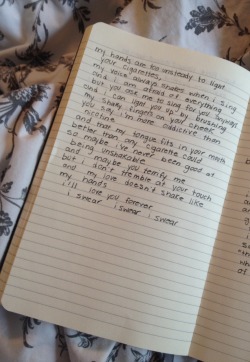 my hands are too unsteady to light
your cigarettes,
my voice always shakes when i sing
and i am afraid of everything
but you ask me to sing for you anyways
and i can light you up by brushing
my shaky fingers on your cheek
you say i'm more addictive than
nicotine
and that my tongue fits in your mouth
better than any cigarette could
so maybe i've never been good at
being unshakable
and maybe you terrify me
but i don't tremble at your touch
and my love doesn't shake like
my hands
i'll love you forever
i swear i swear i swear